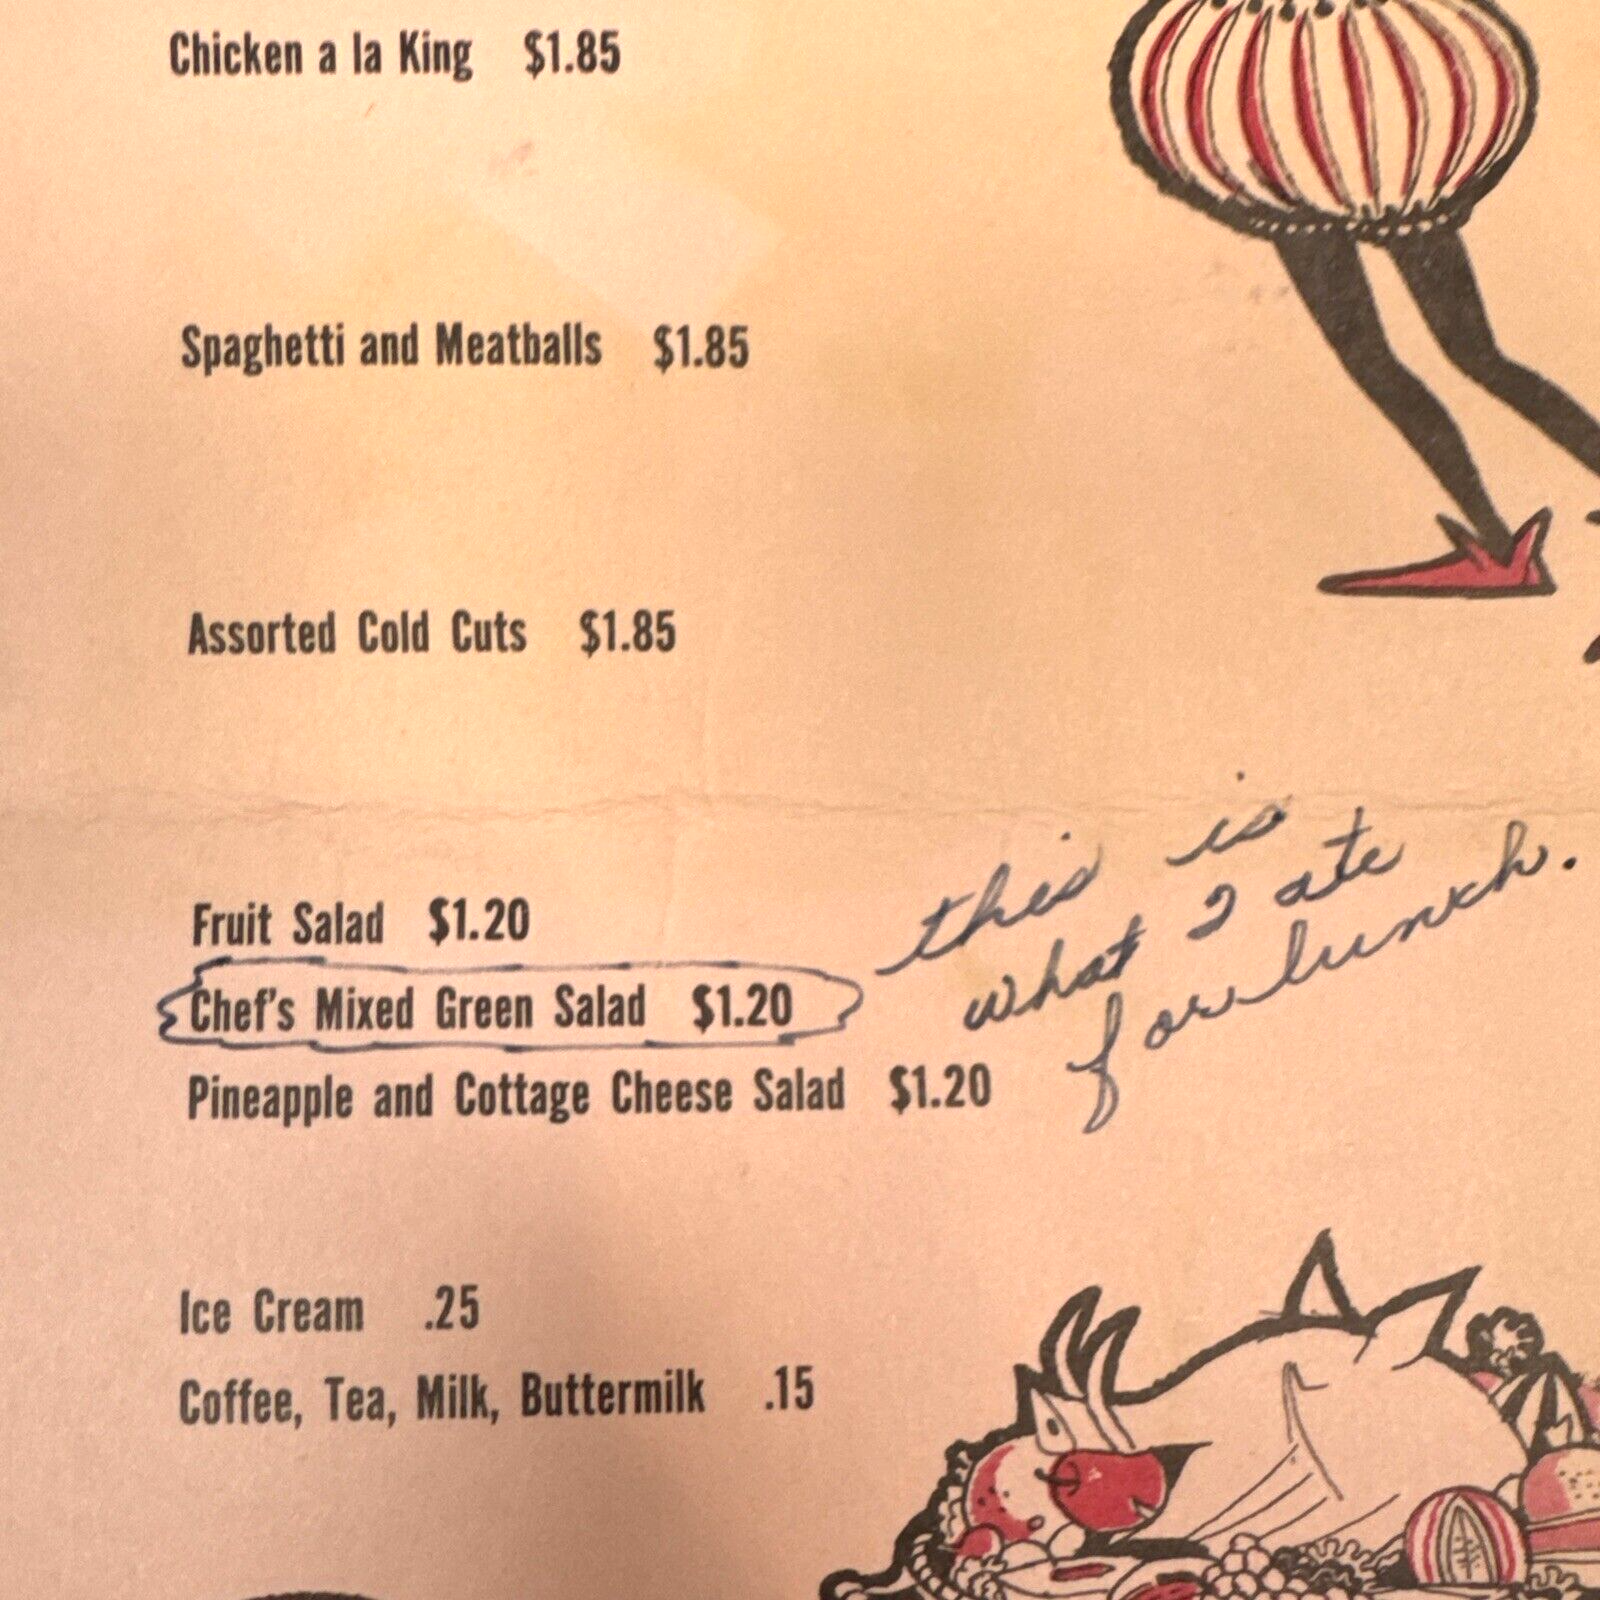 Chicken a la King $1.85
Spaghetti and Meatballs $1.85
Assorted Cold Cuts $1.85
Fruit Salad $1.20
Chef's Mixed Green Salad $1.20
Pineapple and Cottage Cheese Salad $1.20
this is
what I ate
for lunch.
Ice Cream .25
Coffee, Tea, Milk, Buttermilk .15